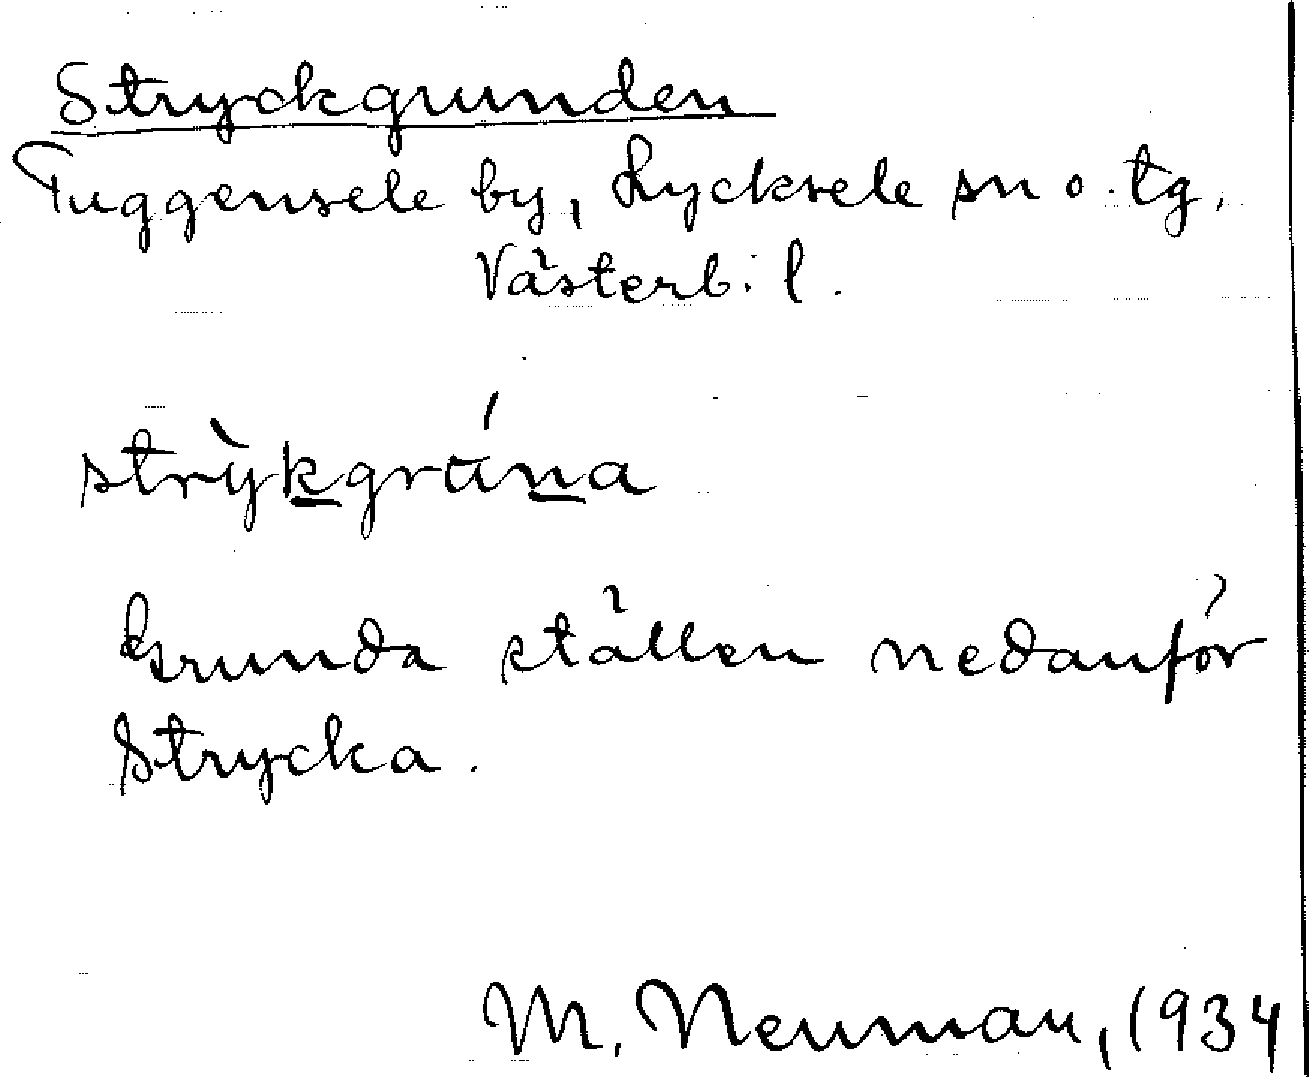 Stryckgrunden
Tuggensele by, Lycksele sn o. tg,
Västerb. l.
strỳkgrúna
Grunda ställen nedanför
Strycka.
M. Neuman, 1934